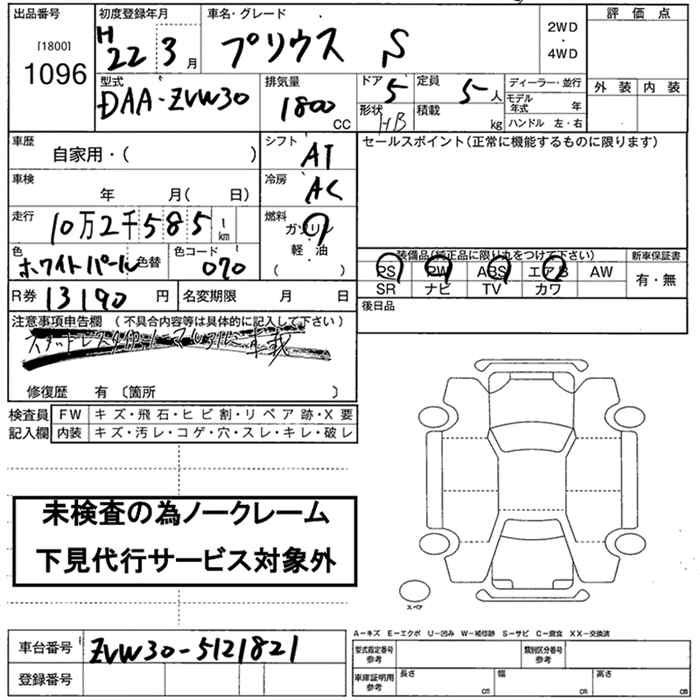 出品番号 初度登録年月 車名・グレード 評価点
[1800] H 22 3月 プリウス S 2WD
・
1096 4WD
外装 内装
型式 排気量 ドア 5 定員 5人 ディーラー・並行
DAA-ZVW30 1800 CC 形状 HB 積載 kg モデル年式 年
ハンドル 左・右
車歴 シフト セールスポイント(正常に機能するものに限ります)
自家用・( ) AT
車検 冷房
年 月( 日) AC
走行 燃料
10万2千585 km ガソリン
軽・油
( )
色 色コード 装備品(純正品に限り丸をつけて下さい) 新車保証書
ホワイトパール 色替 070 PS PW ABS エアB AW 有・無
SR ナビ TV カワ
R券 13190円 名変期限 月 日 後日品
注意事項申告欄 (不具合内容等は具体的に記入して下さい)
修復歴 有 〔箇所 〕
検査員 FW キズ・飛石・ヒビ割・リペア跡・X要
記入欄 内装 キズ・汚レ・コゲ・穴・スレ・キレ・破レ
未検査の為ノークレーム
下見代行サービス対象外
スペア
A-キズ E-エクボ U-凹み W-補修跡 S-サビ C-腐食 XX-交換済
車台番号 ZVW30-5121821 型式指定番号 参考 類別区分番号 参考
登録番号 車庫証明用 参考 長さ cm 幅 cm 高さ cm